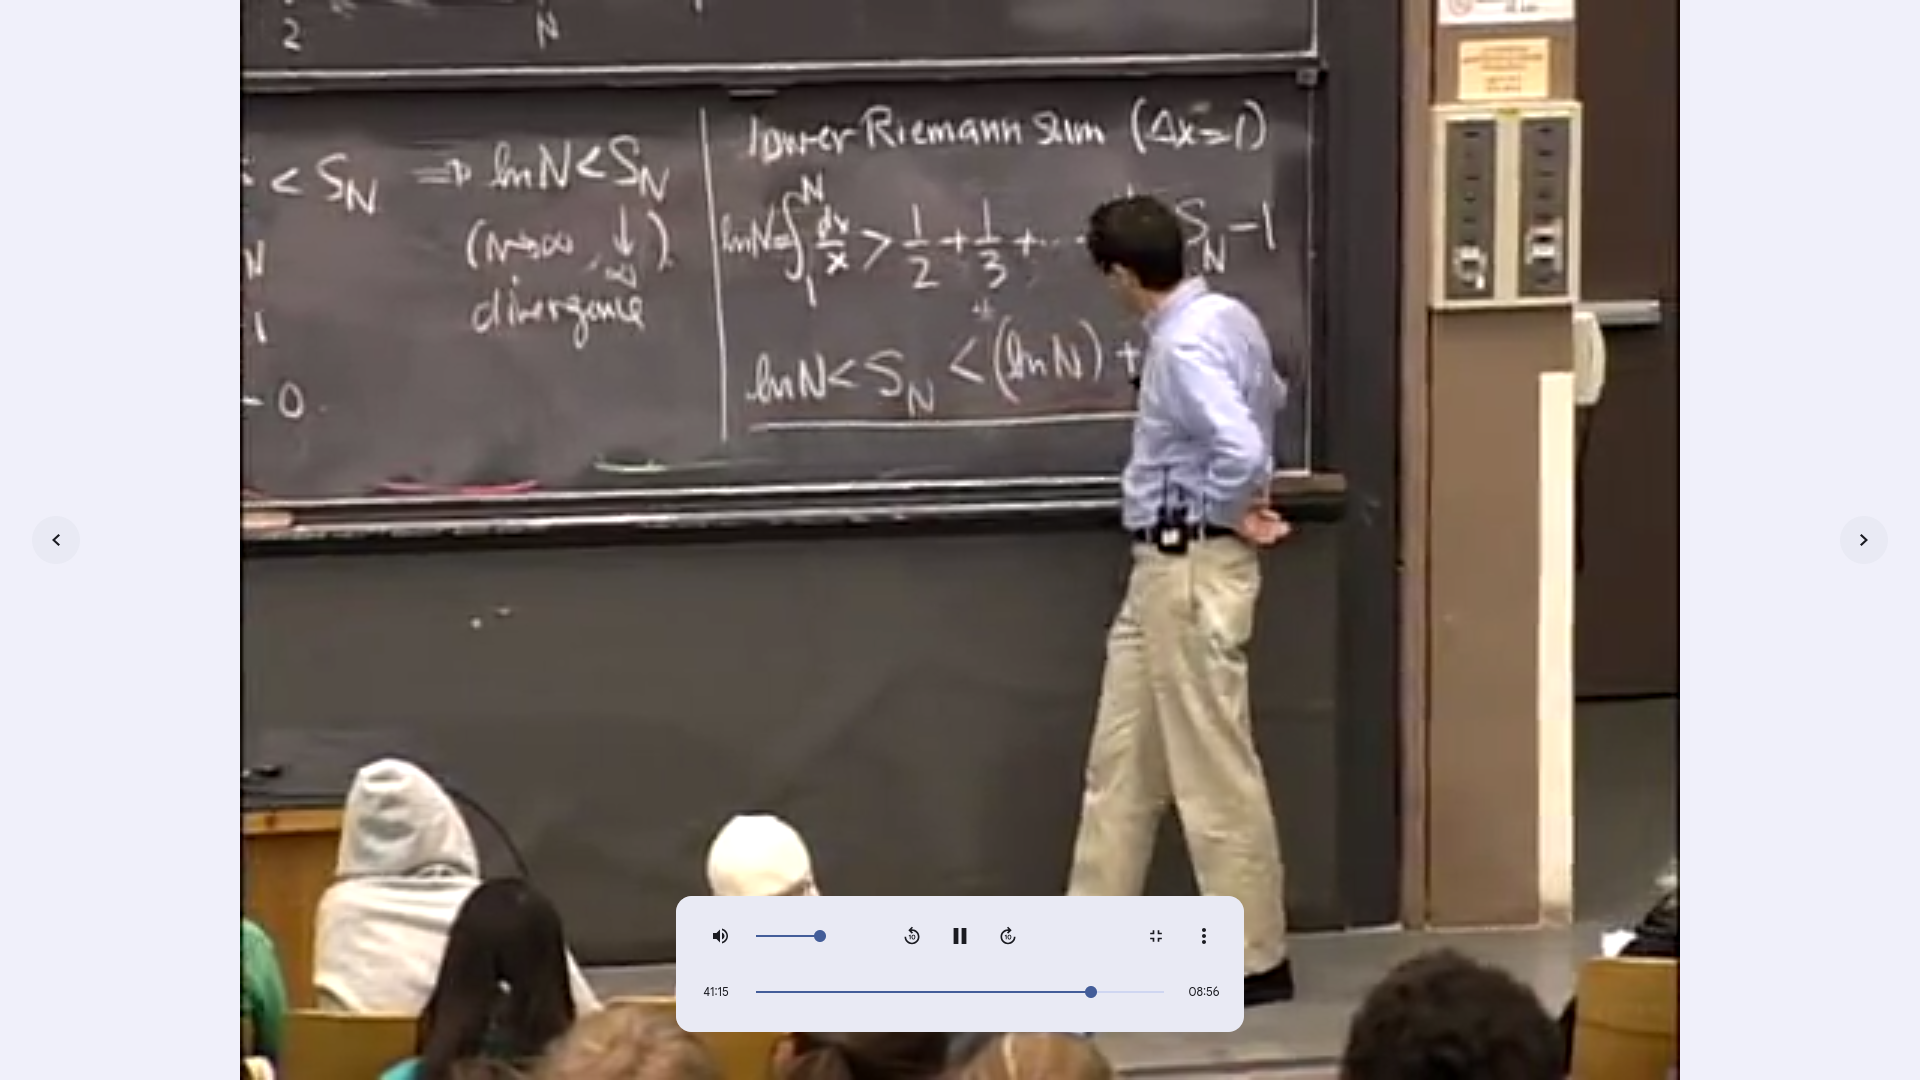 2
N
< S_N ⇒ ln N < S_N
(N→∞, ↓ ∞)
divergence
N
1
- 0
lower Riemann sum (Δx=1)
ln N = ∫_1^N dx/x > 1/2 + 1/3 + ... S_N - 1
ln N < S_N < (ln N) +
10
10
41:15
08:56